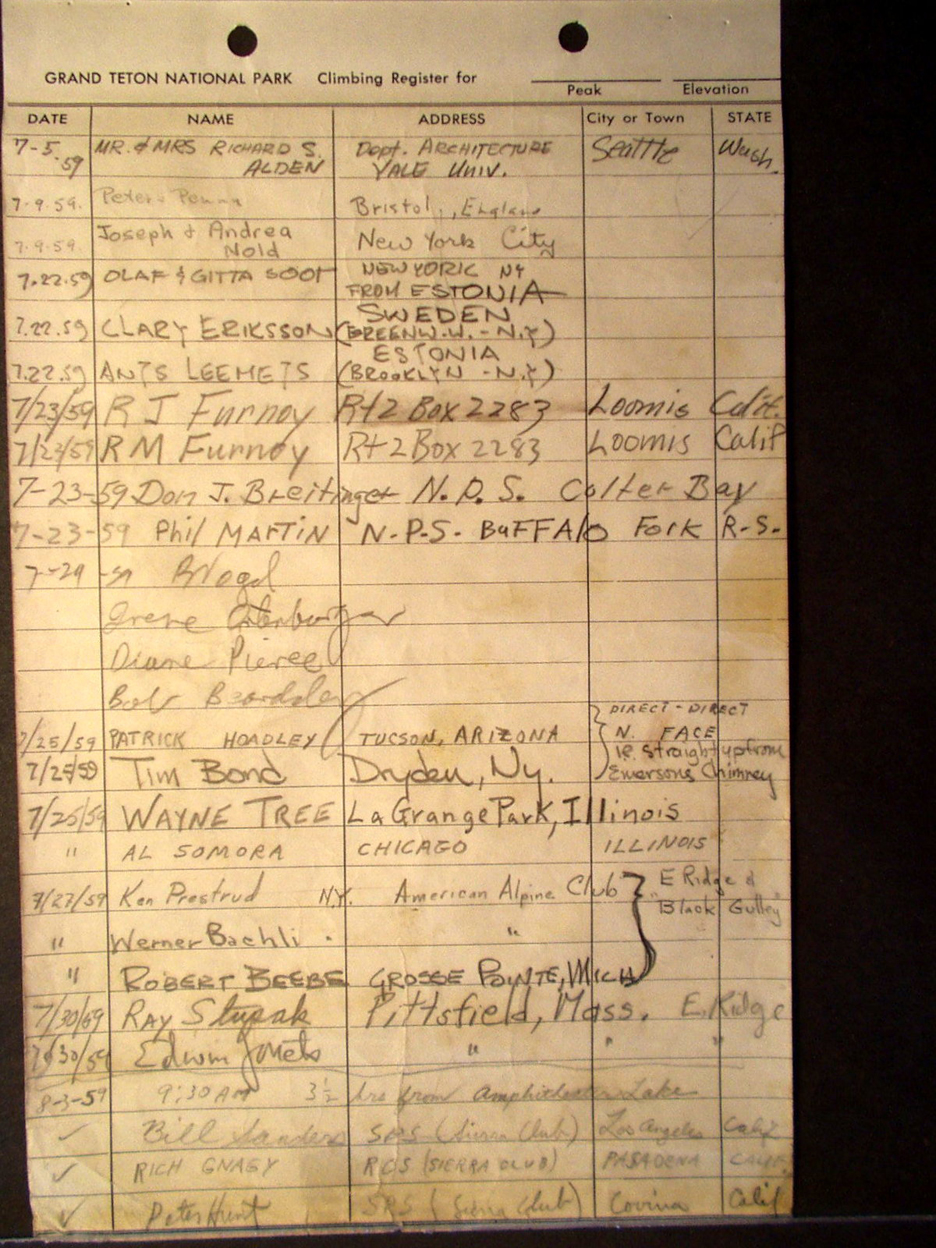 GRAND TETON NATIONAL PARK Climbing Register for
Peak Elevation
DATE NAME ADDRESS City or Town STATE
7-5.59 MR. & MRS RICHARD S. Dept. ARCHITECTURE Seattle Wash.
ALDEN YALE UNIV.
7-9.59. Peter Bristol, England
7.9.59. Joseph & Andrea New York City
Nold
7.22.59 OLAF & GITTA SOOT NEW YORK NY
FROM ESTONIA
SWEDEN
7.22.59 CLARY ERIKSSON (GREENW.W. - N.Y)
ESTONIA
7.22.59 ANTS LEEMETS (BROOKLYN - N.Y)
7/23/59 R J Furnoy Rt2 Box 2283 Loomis Calif.
7/23/59 R M Furnoy Rt 2 Box 2283 Loomis Calif
7-23-59 Don J. Breitinger N.P.S. Colter Bay
7-23-59 Phil MARTIN N.P.S. BUFFAlo FORK R.S.
7-29-59
Irene Ortenburger
Diane Pierce
Bob Beardsley
DIRECT - DIRECT
7/25/59 PATRICK HOADLEY TUCSON, ARIZONA N. FACE
ie. straight up from
7/25/59 Tim Bond Dryden, Ny. Emersons Chimney
7/25/59 WAYNE TREE La Grange Park, Illinois
" AL SOMORA CHICAGO ILLINOIS
7/27/59 Ken Prestrud N.Y. American Alpine Club E Ridge &
Black Gulley
" Werner Bachli. "
" ROBERT BEEBE GROSSE POINTE, MICH
7/30/59 RAY Stupak Pittsfield, Mass. E. Ridge
7/30/59 Edwin " " "
8-3-59 9:30 AM 3½ hrs from Amphitheater Lake
✓ Bill Sanders SPS (Sierra Club) Los Angeles Calif
✓ RICH GNAGY RCS (SIERRA CLUB) PASADENA CALIF.
✓ Peter Hunt SPS (Sierra Club) Covina Calif